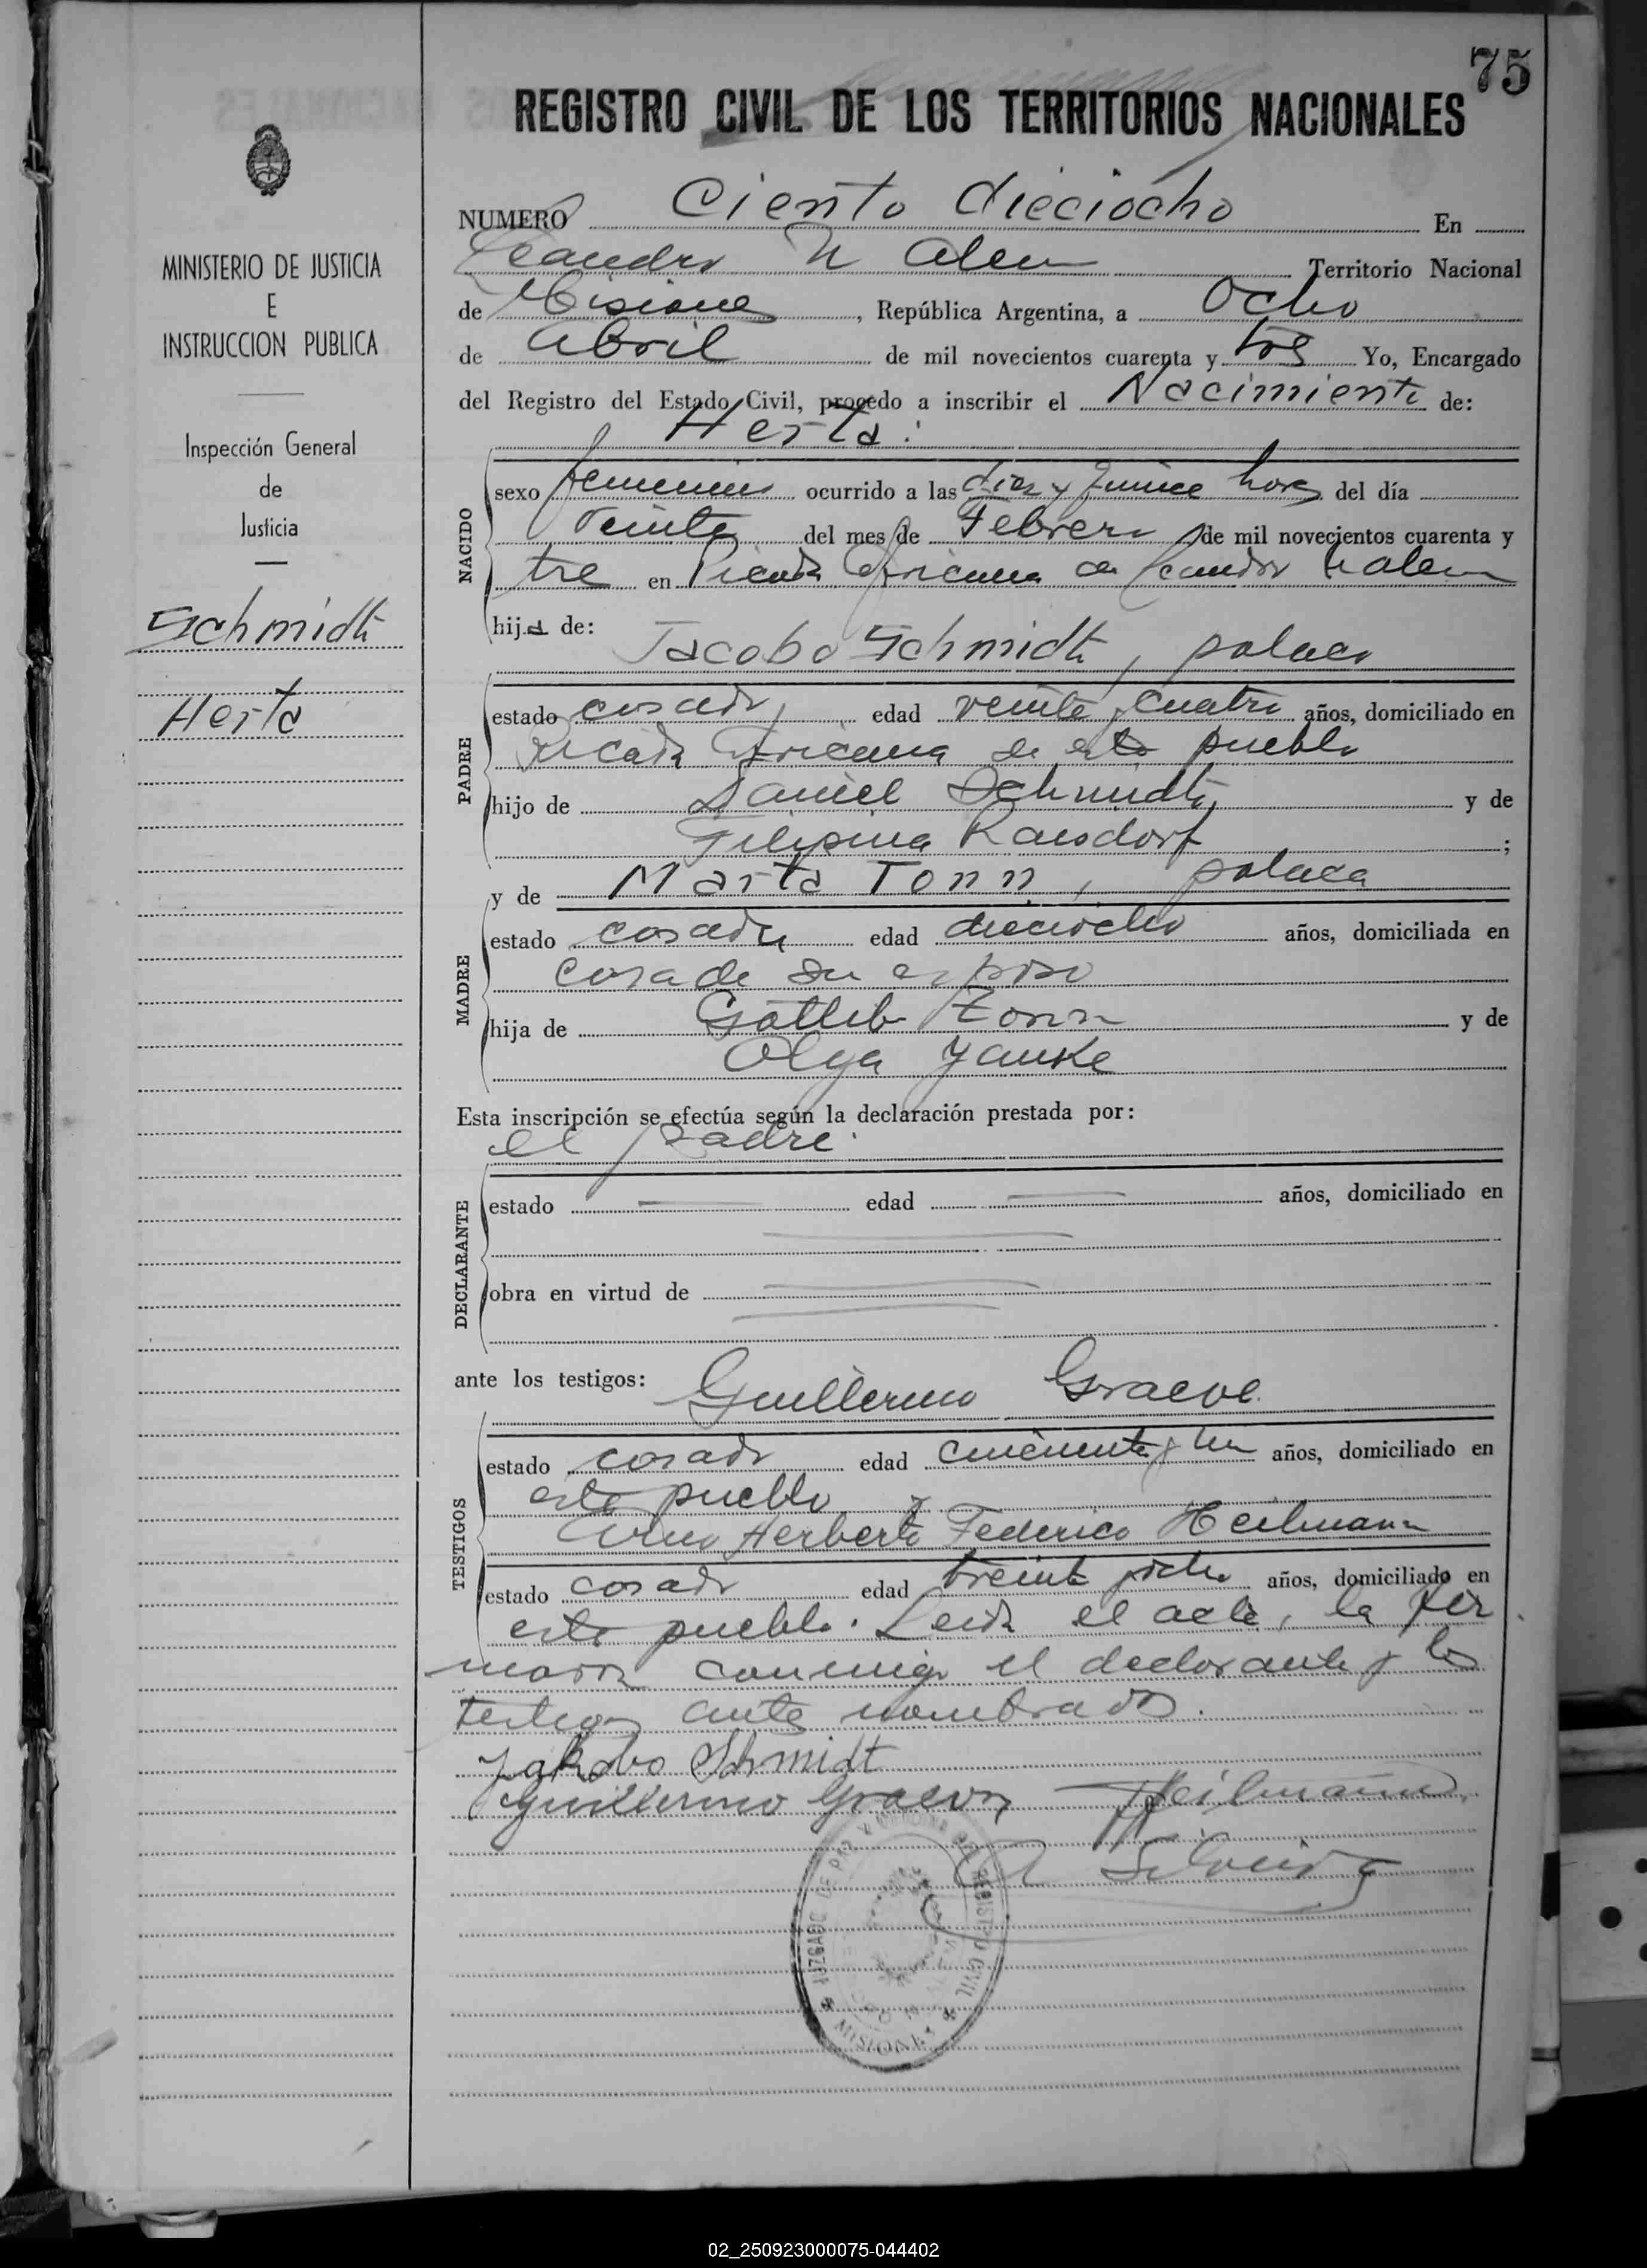 75
REGISTRO CIVIL DE LOS TERRITORIOS NACIONALES
MINISTERIO DE JUSTICIA
E
INSTRUCCION PUBLICA
Inspección General
de
Justicia
Schmidt
Herta
NUMERO Ciento dieciocho En
Leandro N Alem Territorio Nacional
de Misiones, República Argentina, a Ocho
de Abril de mil novecientos cuarenta y tres Yo, Encargado
del Registro del Estado Civil, procedo a inscribir el Nacimiento de:
Herta.
NACIDO
sexo femenino ocurrido a las diez y quince horas del día
veinte del mes de Febrero de mil novecientos cuarenta y
tres en Picada de Leandro N Alem
hija de:
Jacobo Schmidt, polaco
PADRE
estado casado, edad veinte y cuatro años, domiciliado en
Picada de este pueblo
hijo de Daniel Schmidt, y de
Filipina ;
y de Marta Tonn, polaca
MADRE
estado casada edad dieciocho años, domiciliada en
casa de su esposo
hija de Gottlieb Tonn y de
Olga Yanke
Esta inscripción se efectúa según la declaración prestada por:
el padre.
DECLARANTE
estado edad años, domiciliado en
obra en virtud de
ante los testigos: Guillermo Graeve
TESTIGOS
estado casado edad cincuenta y un años, domiciliado en
este pueblo y
Herberto Federico Heilmann
estado casado edad treinta y ocho años, domiciliado en
este pueblo. Leida el acta, la fir
maron conmigo el declarante y los
testigos antes nombrados.
Jakobo Schmidt
Guillermo Graeve Heilmann
JUZGADO DE PAZ Y OFICINA DEL REGISTRO CIVIL
MISIONES
02_250923000075-044402